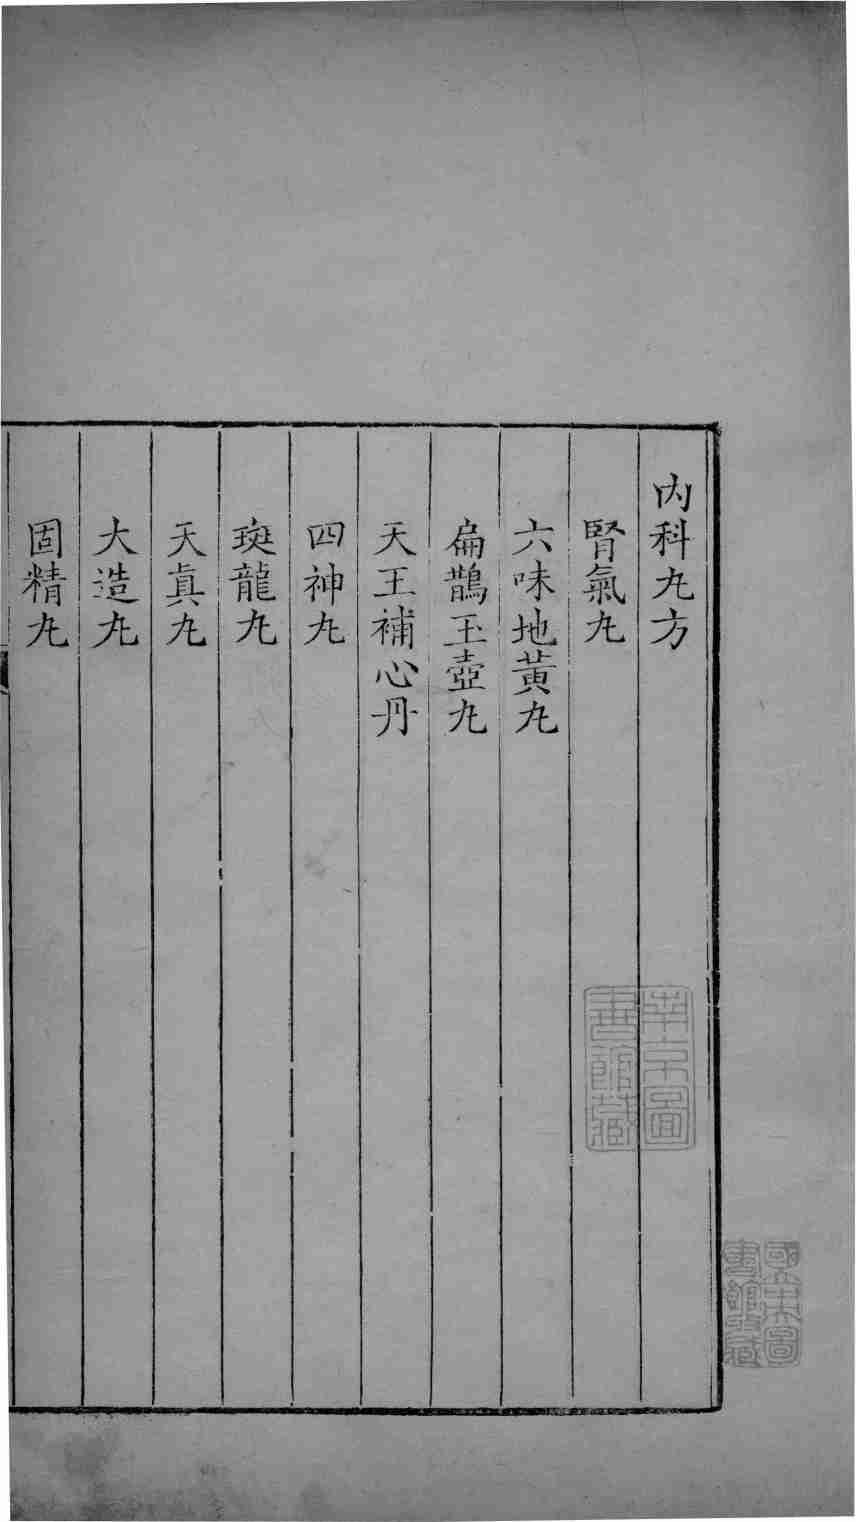 內科丸方
腎氣丸
六味地黃丸
扁鵲玉壺丸
天王補心丹
四神丸
斑龍丸
天真丸
大造丸
固精丸
南京圖
書館藏
國立中央圖
書館收藏